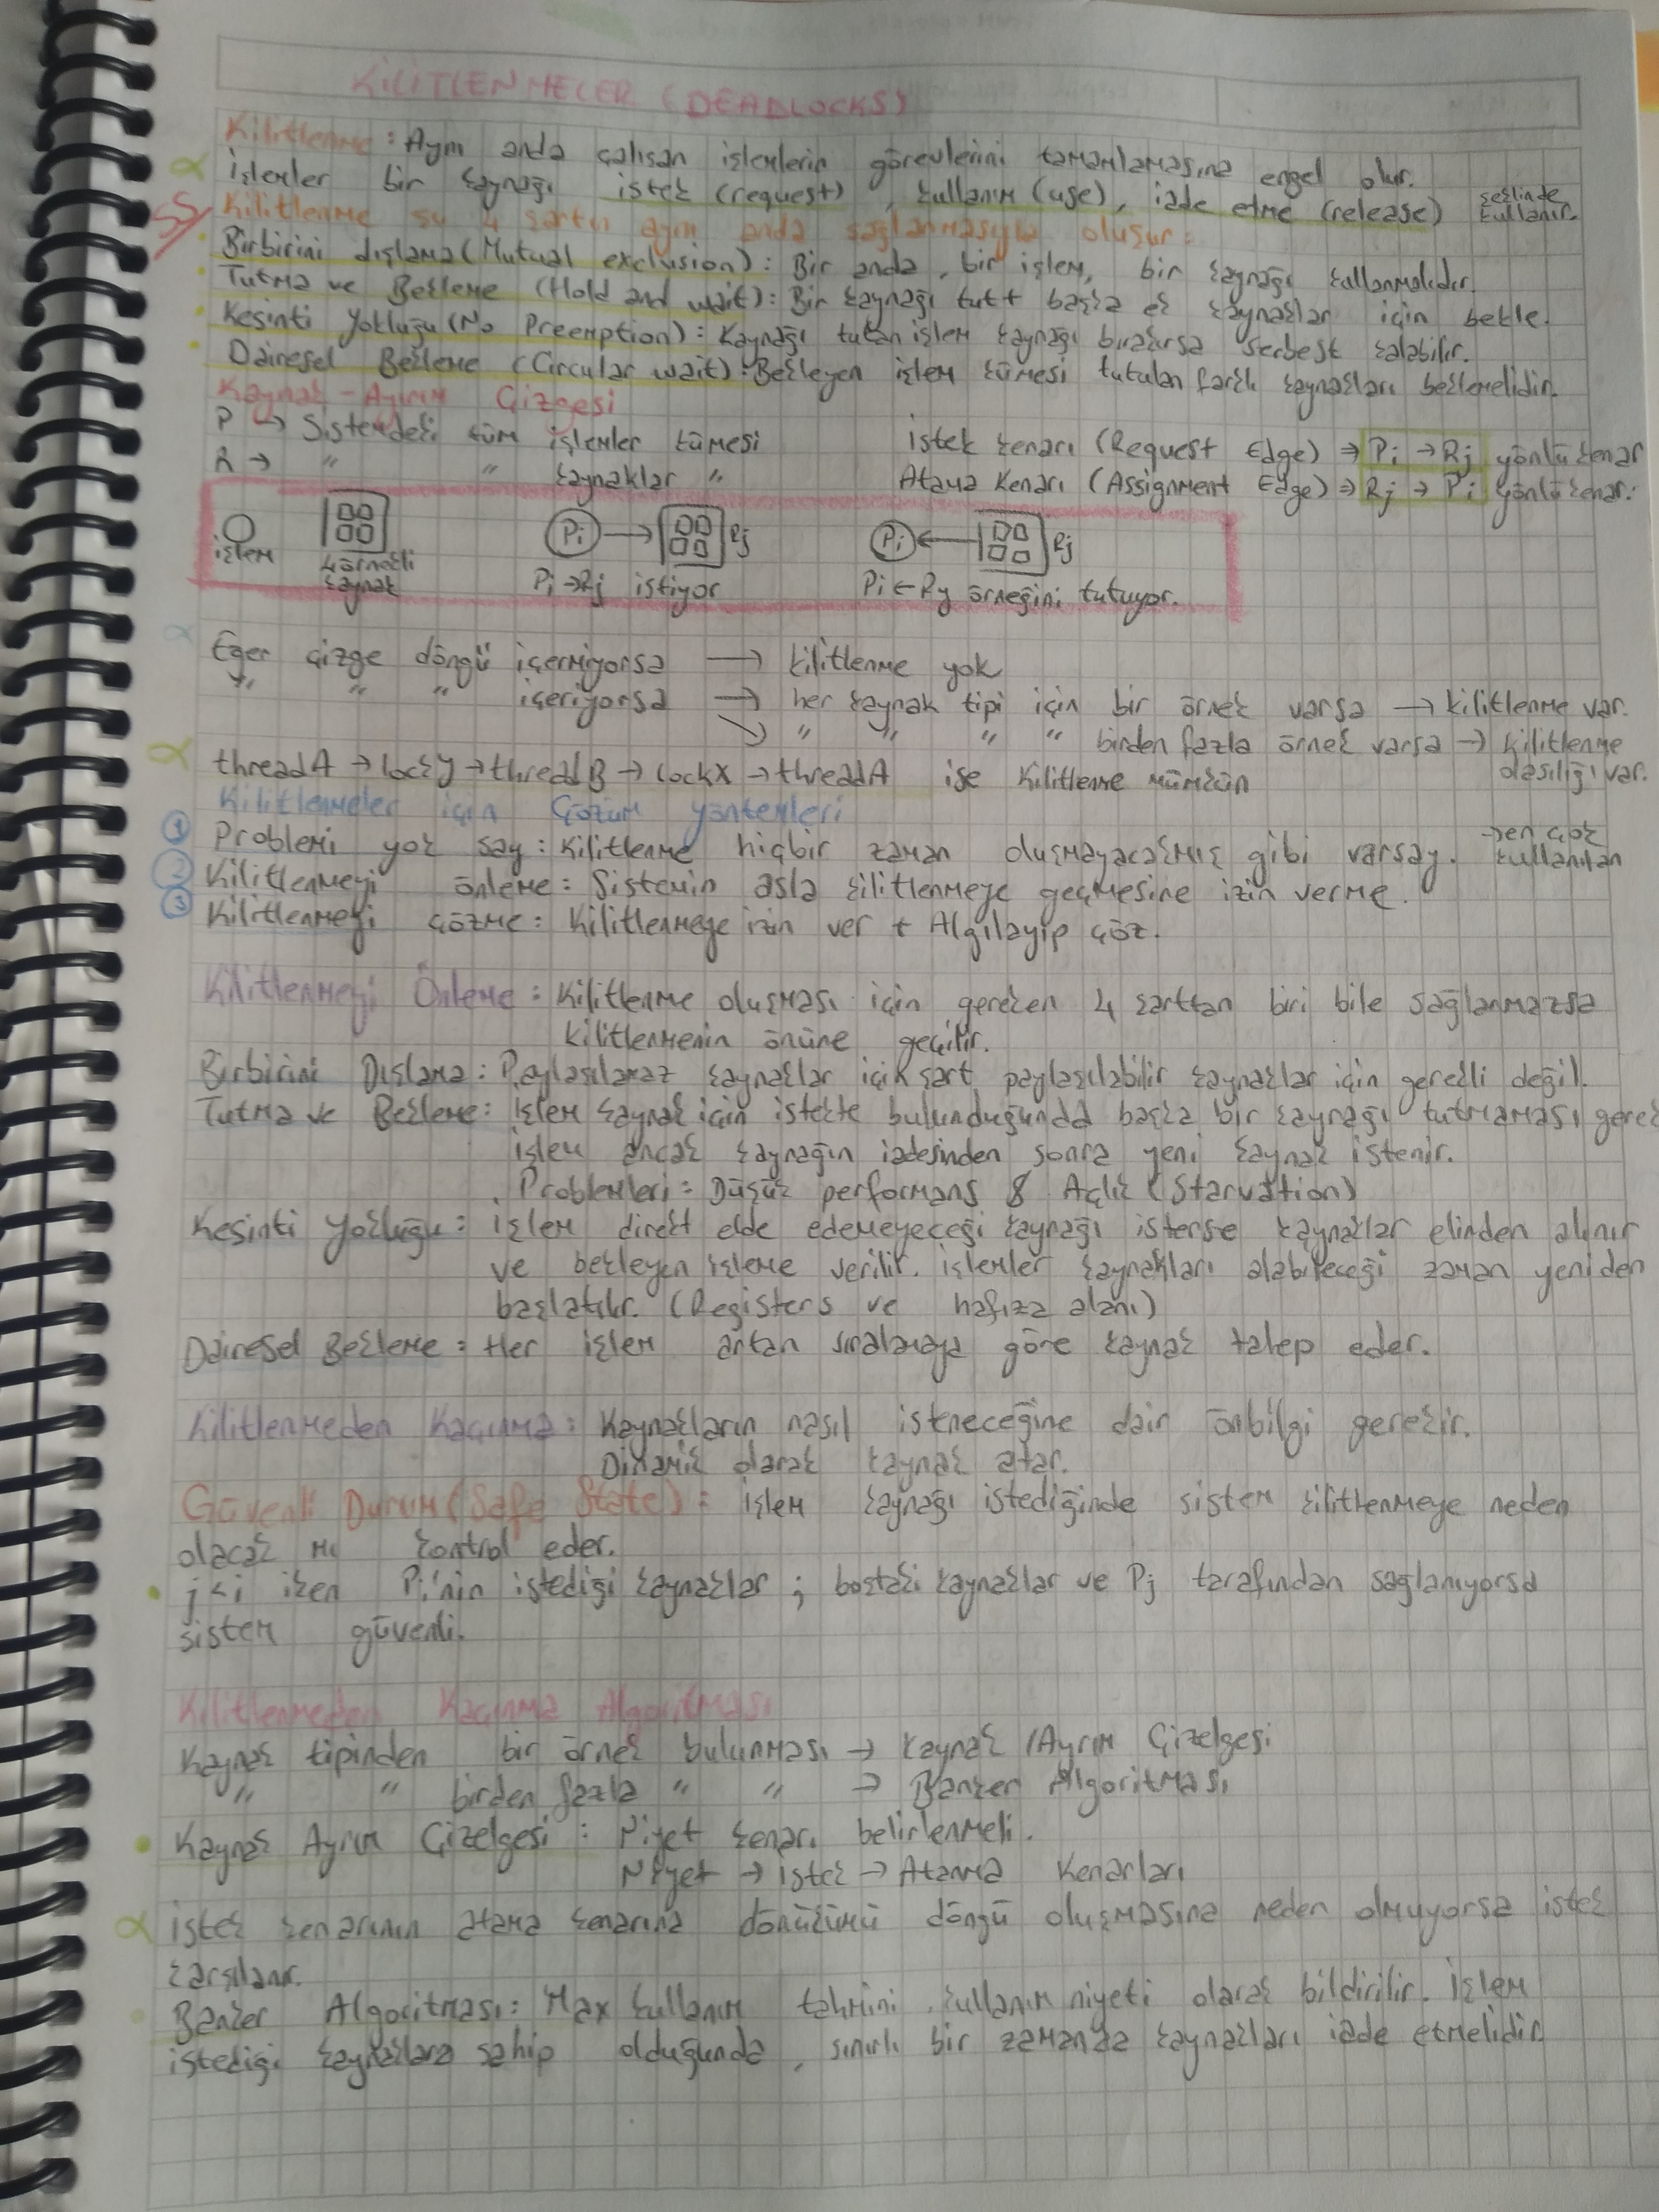 KİLİTLENMELER (DEADLOCKS)
Kilitlenme : Aynı anda çalışan işlemlerin görevlerini tamamlamasına engel olur.
işlemler bir kaynağı istek (request), kullanım (use), iade etme (release) şeklinde kullanır.
SS Kilitlenme şu 4 şartın aynı anda sağlanmasıyla oluşur :
Birbirini dışlama (Mutual exclusion) : Bir anda, bir işlem, bir kaynağı kullanmalıdır.
Tutma ve Bekleme (Hold and wait) : Bir kaynağı tut + başka ek kaynaklar için bekle.
Kesinti Yokluğu (No Preemption) : Kaynağı tutan işlem kaynağı bırakırsa serbest kalabilir.
Dairesel Bekleme (Circular wait) : Bekleyen işlem kümesi tutulan farklı kaynakları beklemelidir.
Kaynak - Ayırım Çizgesi
P → Sistemdeki tüm işlemler kümesi istek kenarı (Request Edge) ⇒ Pi → Rj yönlü kenar
R → " " kaynaklar " Atama Kenarı (Assignment Edge) ⇒ Rj → Pi yönlü kenar.
Pi Rj Pi Rj
işlem 4 örnekli kaynak Pi → Rj istiyor Pi ← Rj örneğini tutuyor.
Eğer çizge döngü içermiyorsa → kilitlenme yok
" " " içeriyorsa → her kaynak tipi için bir örnek varsa → kilitlenme var.
↘ " " " " birden fazla örnek varsa → kilitlenme olasılığı var.
threadA → lockY → threadB → lockX → threadA ise kilitlenme mümkün
Kilitlenmeler için Çözüm yöntemleri
1 Problemi yok say : Kilitlenme hiçbir zaman oluşmayacakmış gibi varsay. → en çok kullanılan
2 Kilitlenmeyi önleme : Sistemin asla kilitlenmeye geçmesine izin verme.
3 Kilitlenmeyi çözme : Kilitlenmeye izin ver + Algılayıp çöz.
Kilitlenmeyi Önleme : Kilitlenme oluşması için gereken 4 şarttan biri bile sağlanmazsa
kilitlenmenin önüne geçilir.
Birbirini Dışlama : Paylaşılamaz kaynaklar için şart paylaşılabilir kaynaklar için gerekli değil.
Tutma ve Bekleme : işlem kaynak için istekte bulunduğunda başka bir kaynağı tutmaması gerek
işlem ancak kaynağın iadesinden sonra yeni kaynak istenir.
. Problemleri : Düşük performans & Açlık (Starvation)
Kesinti Yokluğu : işlem direkt elde edemeyeceği kaynağı isterse kaynaklar elinden alınır
ve bekleyen işleme verilir. işlemler kaynakları alabileceği zaman yeniden
başlatılır. (Registers ve hafıza alanı)
Dairesel Bekleme : Her işlem artan sıralamaya göre kaynak talep eder.
Kilitlenmeden Kaçınma : Kaynakların nasıl isteneceğine dair önbilgi gerekir.
Dinamik olarak kaynak atar.
Güvenli Durum (Safe State) : işlem kaynağı istediğinde sistem kilitlenmeye neden
olacak mı kontrol eder.
j<i iken Pi'nin istediği kaynaklar ; boştaki kaynaklar ve Pj tarafından sağlanıyorsa
sistem güvenli.
Kilitlenmeden Kaçınma Algoritması
Kaynak tipinden bir örnek bulunması → kaynak / Ayrım Çizelgesi
" " birden fazla " " → Banker Algoritması
Kaynak Ayrım Çizelgesi : Niyet kenarı belirlenmeli.
Niyet → istek → Atanma Kenarları
istek kenarının atama kenarına dönüşümü döngü oluşmasına neden olmuyorsa istek
karşılanır.
Banker Algoritması : Max kullanım tahmini kullanım niyeti olarak bildirilir. İşlem
istediği kaynaklara sahip olduğunda, sınırlı bir zamanda kaynakları iade etmelidir.